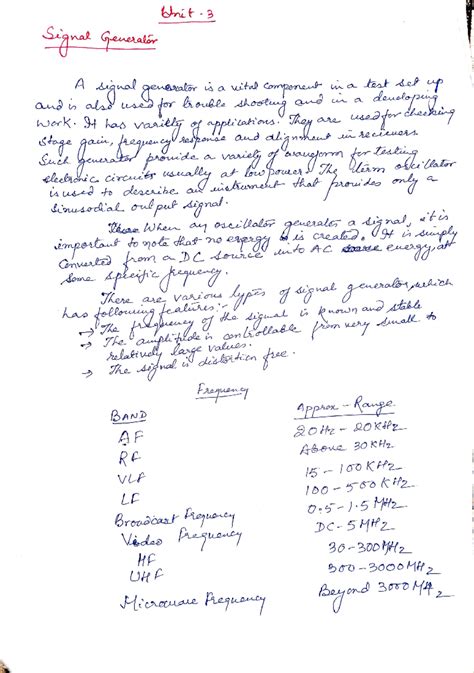 Unit-3
Signal Generator
A signal generator is a vital component in a test set up
and is also used for trouble shooting and in a developing
work. It has varitty of applications. They are used for checking
stage gain, frequency response and alignment in recievers
Such generator provide a variety of waveform for testing
electronic circuits usually at low power. The term oscillator
is used to describe an instrument that provides only a
sinusodial output signal.
When an oscillator generator a signal, it is
important to note that no energy is created. It is simply
converted from a DC source into AC energy at
some specific frequency.
There are various types of signal generator, which
has following features:-
→ The frequency of the signal is known and stable
→ The amplitude is controllable from very small to
relatively large values.
→ The signal is distortion free.
Frequency
BAND Approx-Range
AF 20Hz - 20KHz
RF Above 30KHz
VLF 15 - 100KHz
LF 100 - 500KHz
Broadcast Frequency 0.5 - 1.5MHz
Video Frequency DC - 5MHz
HF 30 - 300MHz
UHF 300 - 3000MHz
Microwave Frequency Beyond 3000MHz